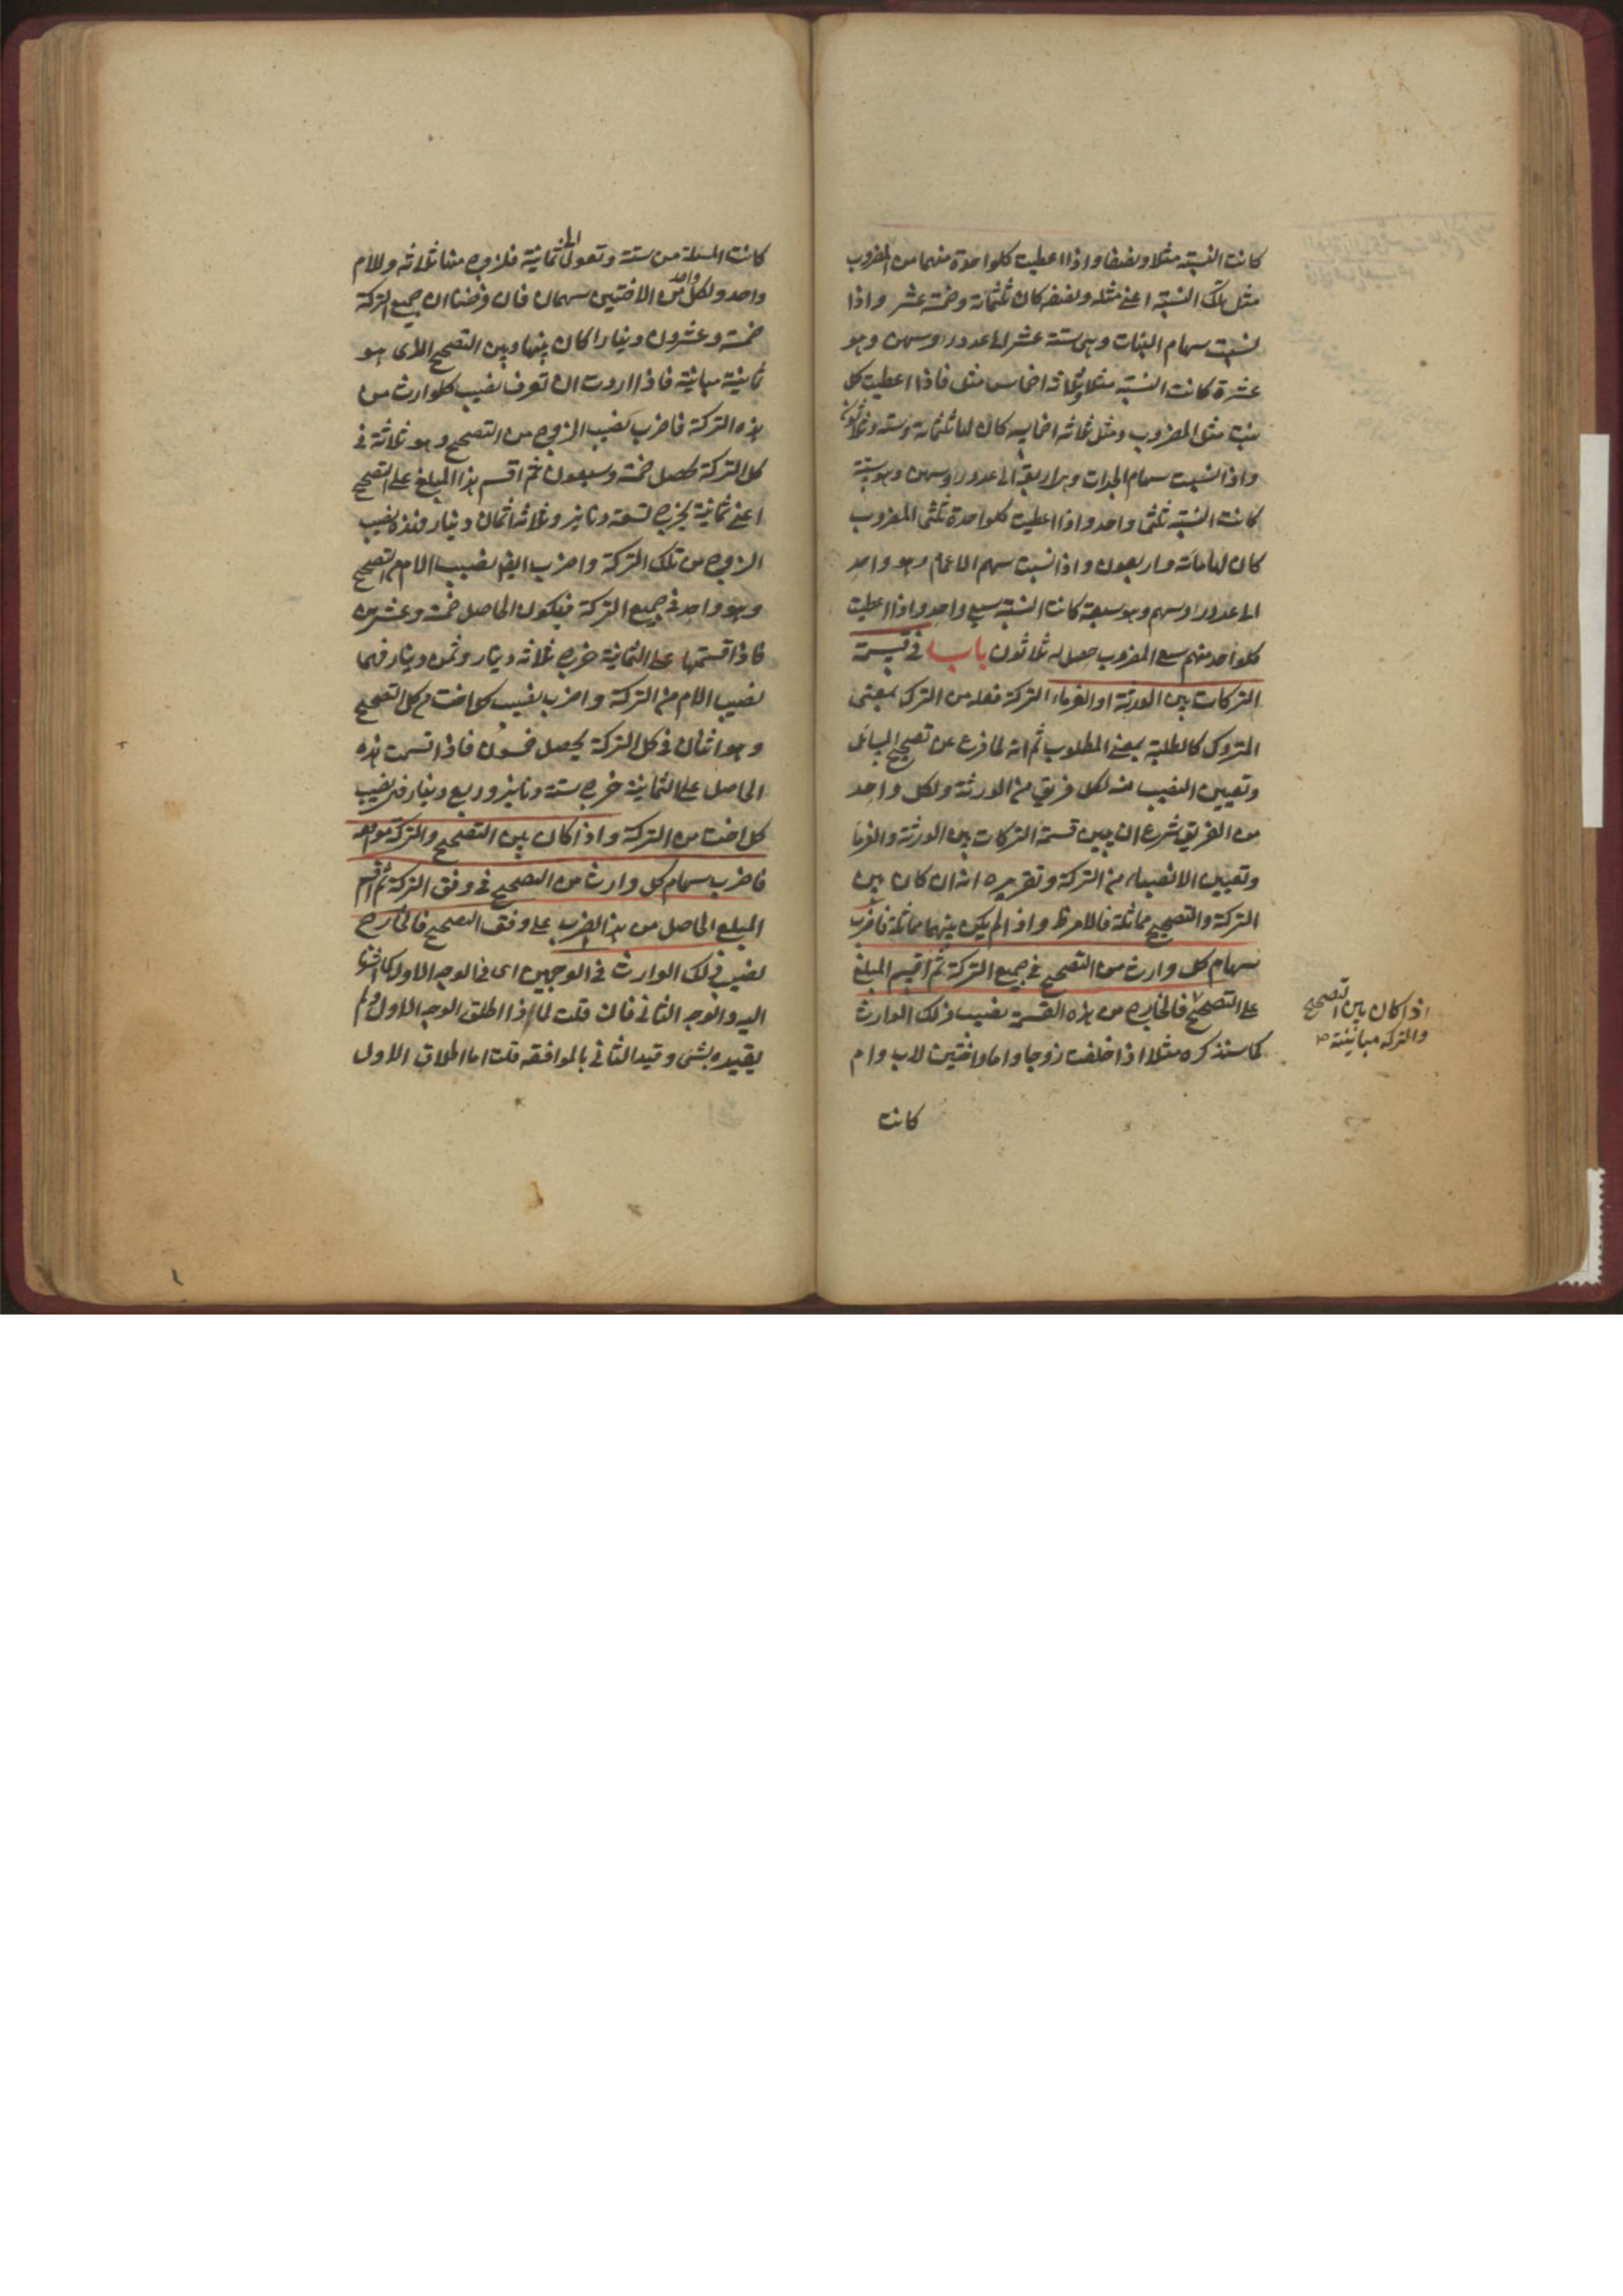 كانت النسبة مثلا ونصفا واذا اعطيت كلواحدة منهما من المضروب
مثل تلك النسبة اعنى مثله ونصفه كان ثلثمائة وخمسة عشر واذا
نسبت سهام البنات وهى ستة عشر الى عدد رؤسهن وهو
عشرة كانت النسبة مثلا وثلاثة اخماس مثل فاذا اعطيت كل
بنت مثل المضروب ومثل ثلاثة اخماسه كان لها ثلثمائة وستة وثلاثون
واذا نسبت سهام الجدات وهى اربعة الى عدد رؤسهن وهو ستة
كانت النسبة ثلثى واحد واذا اعطيت كلواحدة ثلثى المضروب
كان لها مائة واربعون واذا نسبت سهم الاعمام وهو واحد
الى عدد رؤسهم وهو سبعة كانت النسبة سبع واحد واذا اعطيت
كلواحد منهم سبع المضروب حصل له ثلاثون باب فى قسمة
التركات بين الورثة او الغرماء التركة فعلة من الترك بمعنى
المتروك كالطلبة بمعنى المطلوب ثم انه لما فرغ عن تصحيح المسائل
وتعيين النصيب منه لكل فريق من الورثة ولكل واحد
من الفريق شرع ان يبين قسمة التركات بين الورثة والغرما
وتعيين الانصباء من التركة وتقريره انه ان كان بين
التركة والتصحيح مماثلة فالامر ظ واذا لم يكن بينهما مماثلة فاضرب
سهام كل وارث من التصحيح فى جميع التركة ثم اقسم المبلغ
على التصحيح فالخارج من هذه القسمة نصيب ذلك الوارث
كما سنذكره مثلا اذا خلفت زوجا واما واختين لاب وام
كانت
اذا كان بين التصحيح
والتركة مباينة صح
كانت المسئلة من ستة وتعول الى ثمانية فللزوج منها ثلاثة وللام
واحد ولكل واحد من الاختين سهمان فان فرضنا ان جميع التركة
خمسة وعشرون دينارا كان بينها وبين التصحيح الذى هو
ثمانية مباينة فاذا اردت ان تعرف نصيب كلوارث من
هذه التركة فاضرب نصيب الزوج من التصحيح وهو ثلاثة فى
كل التركة يحصل خمسة وسبعون ثم اقسم هذا المبلغ على التصحيح
اعنى ثمانية يخرج تسعة دنانير وثلاثة اثمان دينار فهذه نصيب
الزوج من تلك التركة واضرب ايضا نصيب الام من التصحيح
وهو واحد فى جميع التركة فيكون الحاصل خمسة وعشرين
فاذا قسمتها على الثمانية خرج ثلاثة دينار وثمن دينار فهما
نصيب الام من التركة واضرب نصيب كل اخت من كل التصحيح
وهو اثنان فى كل التركة يحصل خمسون فاذا قسمت هذه
الحاصل على الثمانية خرج ستة دنانير وربع دينار فهى نصيب
كل اخت من التركة واذا كان بين التصحيح والتركة موافقة
فاضرب سهام كل وارث من التصحيح فى وفق التركة ثم اقسم
المبلغ الحاصل من هذا الضرب على وفق التصحيح فالخارج
نصيب ذلك الوارث فى الوجهين اى فى الوجه الاول كما اشرنا
اليه والوجه الثانى فان قلت لماذا اطلق الوجه الاول ولم
يقيده بشئ وقيد الثانى بالموافقة قلت اما اطلاق الاول